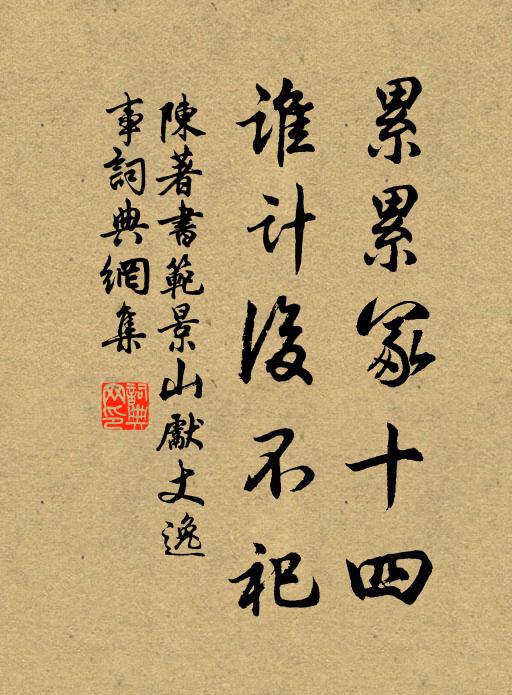 累累冢十四
誰計後不祀
陳著書範景山獻丈逸
事詞典網集
詞典
网印